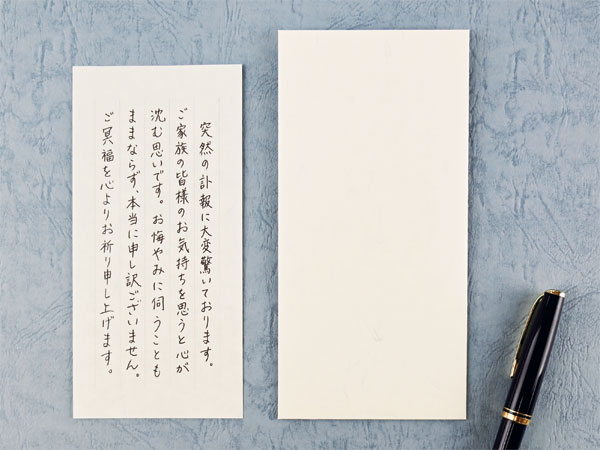 突然の訃報に大変驚いております。
ご家族の皆様のお気持ちを思うと心が
沈む思いです。お悔やみに伺うことも
ままならず、本当に申し訳ございません。
ご冥福を心よりお祈り申し上げます。